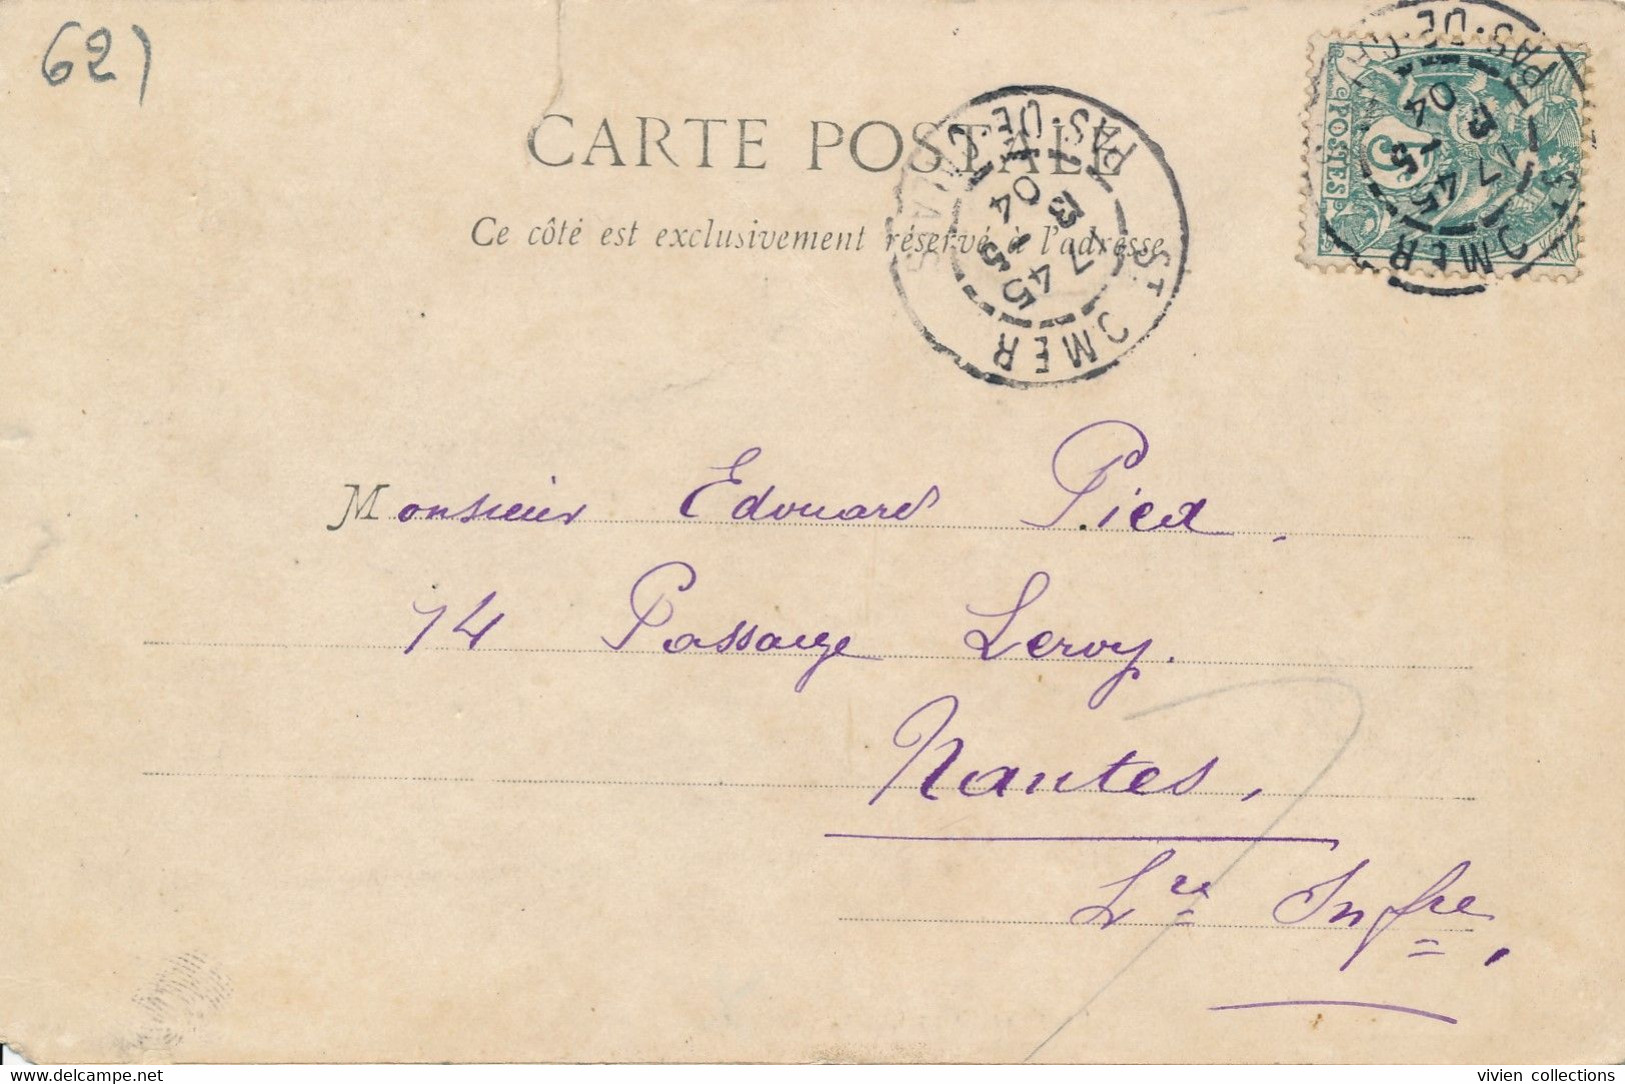 62)
CARTE POSTALE
Ce côté est exclusivement réservé à l'adresse
ST OMER
PAS-DE-CALAIS
7 45
13
04
POSTES
5
ST OMER
PAS-DE-CA
7 45
13
04
Monsieur Edouard Pied,
14 Passage Leroy.
Nantes,
Lre Infre,
vivien collections